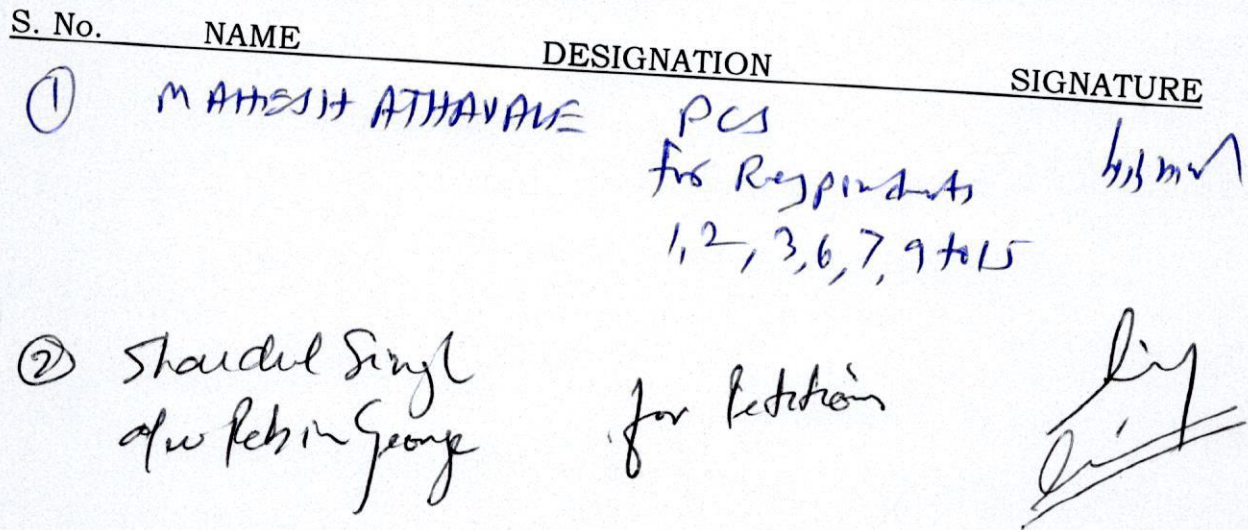 S. No. NAME DESIGNATION SIGNATURE
① MAHESH ATHAVALE PCS
for Respondents
1, 2, 3, 6, 7, 9 to 15
② Shardul Singh for Petition
a/w George